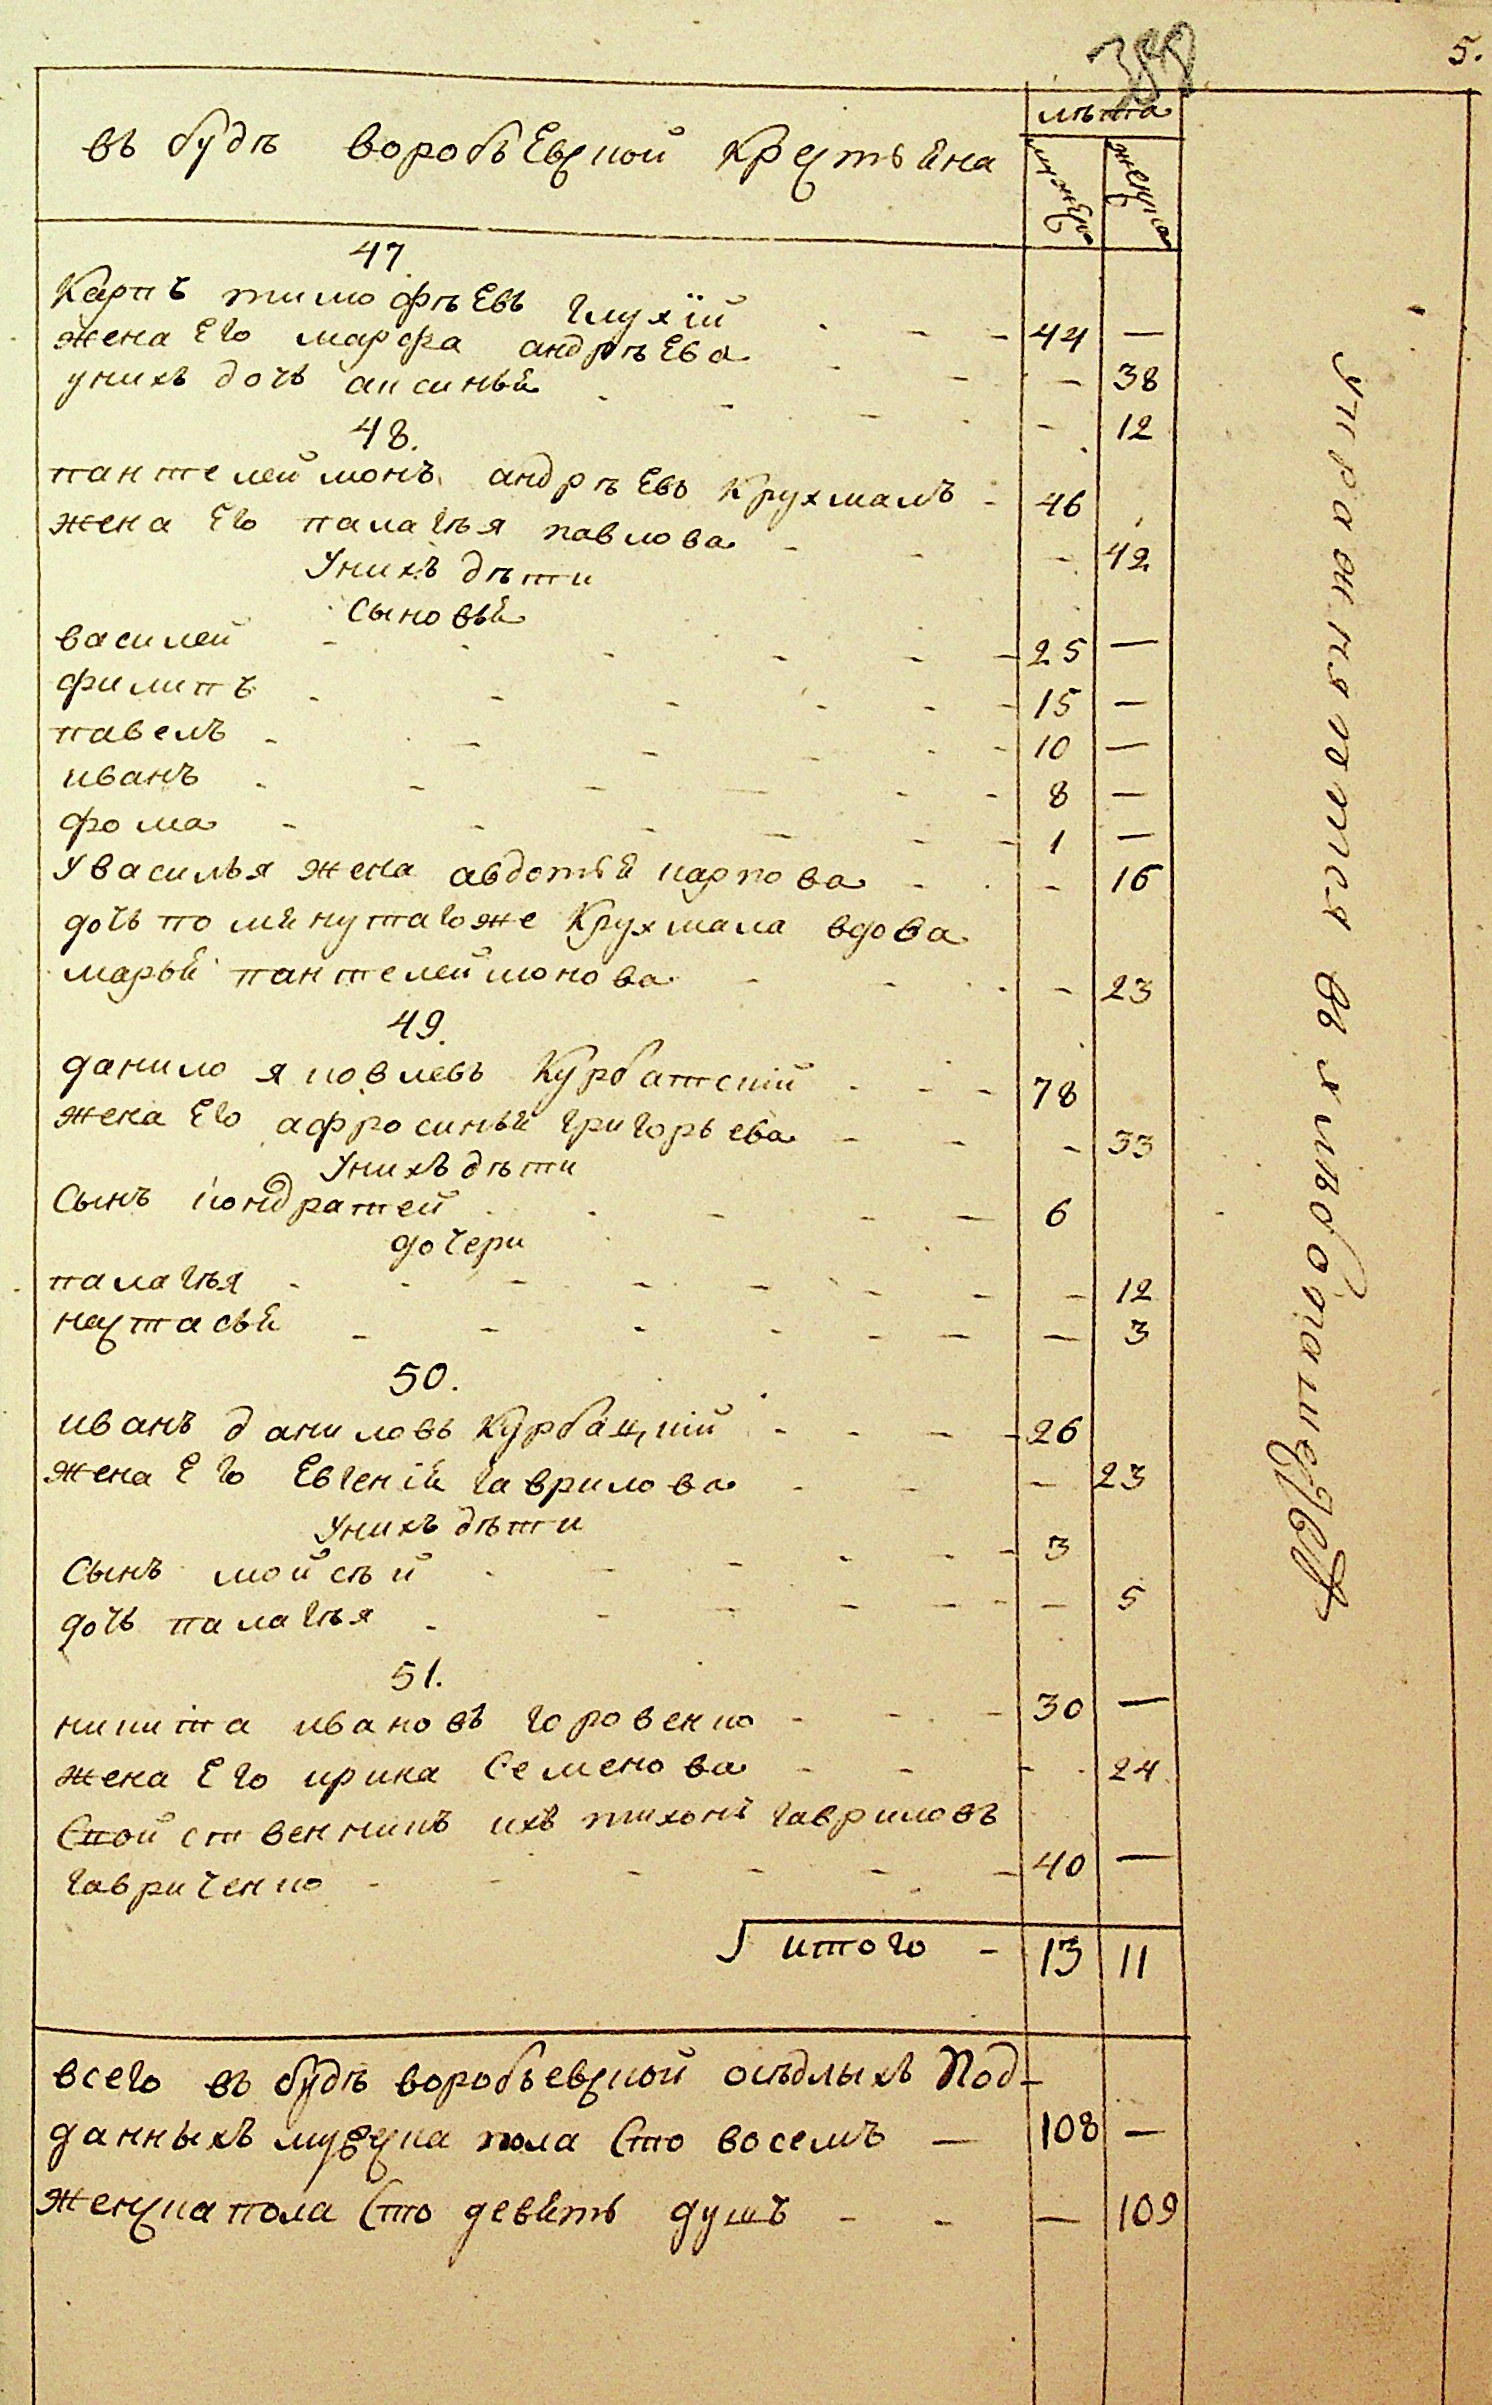 388
5.
въ будѣ воробьЕвской Крестьяна
лѣта
мужеска
женска
47.
Карпъ тимофѣЕвъ глухїй - - - 44 —
жена Его марфа андрѣЕва - - - 38
унихъ дочь аксинья - - - - 12
48.
пантелеймонъ андрѣЕвъ Крухмалъ - 46
жена Его палагѣя павлова - - - 42
Унихъ дѣти
Сыновья
василей - - - - - - 25 —
филипъ - - - - - - 15 —
павелъ - - - - - - 10 —
иванъ - - - - - - 8 —
фома - - - - - - 1 —
У василья жена авдотья карпова - - - 16
дочь помянутагоже Крухмала вдова
марья пантелеймонова - - - - 23
49.
данило яковлевъ Курбатскїй - - - 78
жена Его афросинья григорьева - - - 33
Унихъ дѣти
Сынъ кондратей - - - - 6
дочери
палагѣя - - - - - - - - 12
настасья - - - - - - — 3
50.
иванъ даниловъ Курбацкїй - - - - 26
жена Его Евгенїя гаврилова - - - 23
Унихъ дѣти
Сынъ мойсѣй - - - - - - 3
дочь палагѣя - - - - - - - 5
51.
никита ивановъ горовенко - - - 30 —
жена Его ирина Семенова - - - 24
Свойственникъ ихъ тихонъ гавриловъ
гавриченко - - - - - - 40 —
итого - 13 11
всего въ будѣ воробьевской осѣдлыхъ Под-
данныхъ мужеска пола Сто восемъ — 108 —
женска пола Сто девять душъ - - — 109